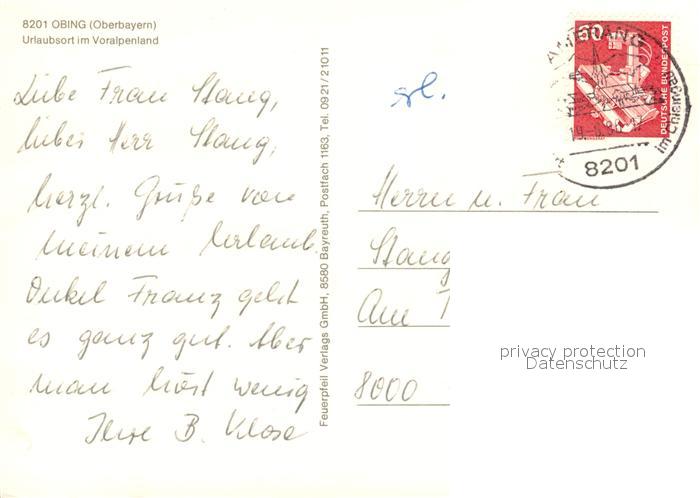 8201 OBING (Oberbayern)
Urlaubsort im Voralpenland
Liebe Frau Stang,
lieber Herr Stang,
herzl. Grüße von
meinem Urlaub.
Onkel Franz geht
es ganz gut. Aber
man hört wenig
Ihre B. Klose
Feuerpfeil Verlags GmbH, 8580 Bayreuth, Postfach 1163, Tel. 0921/21011
60
DEUTSCHE BUNDESPOST
AMERANG
8201
Herrn u. Frau
Stang
Am
8000
privacy protection
Datenschutz